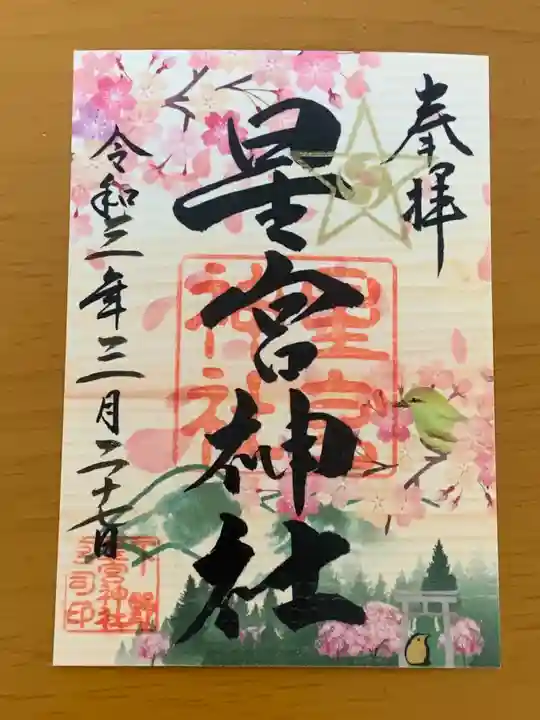 奉拝
星宮神社
令和二年三月二十七日
星宮
神社
下野
星宮神社
宮司印